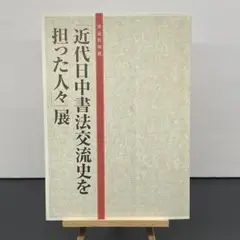 「近代日中書法交流史を
担った人々」展